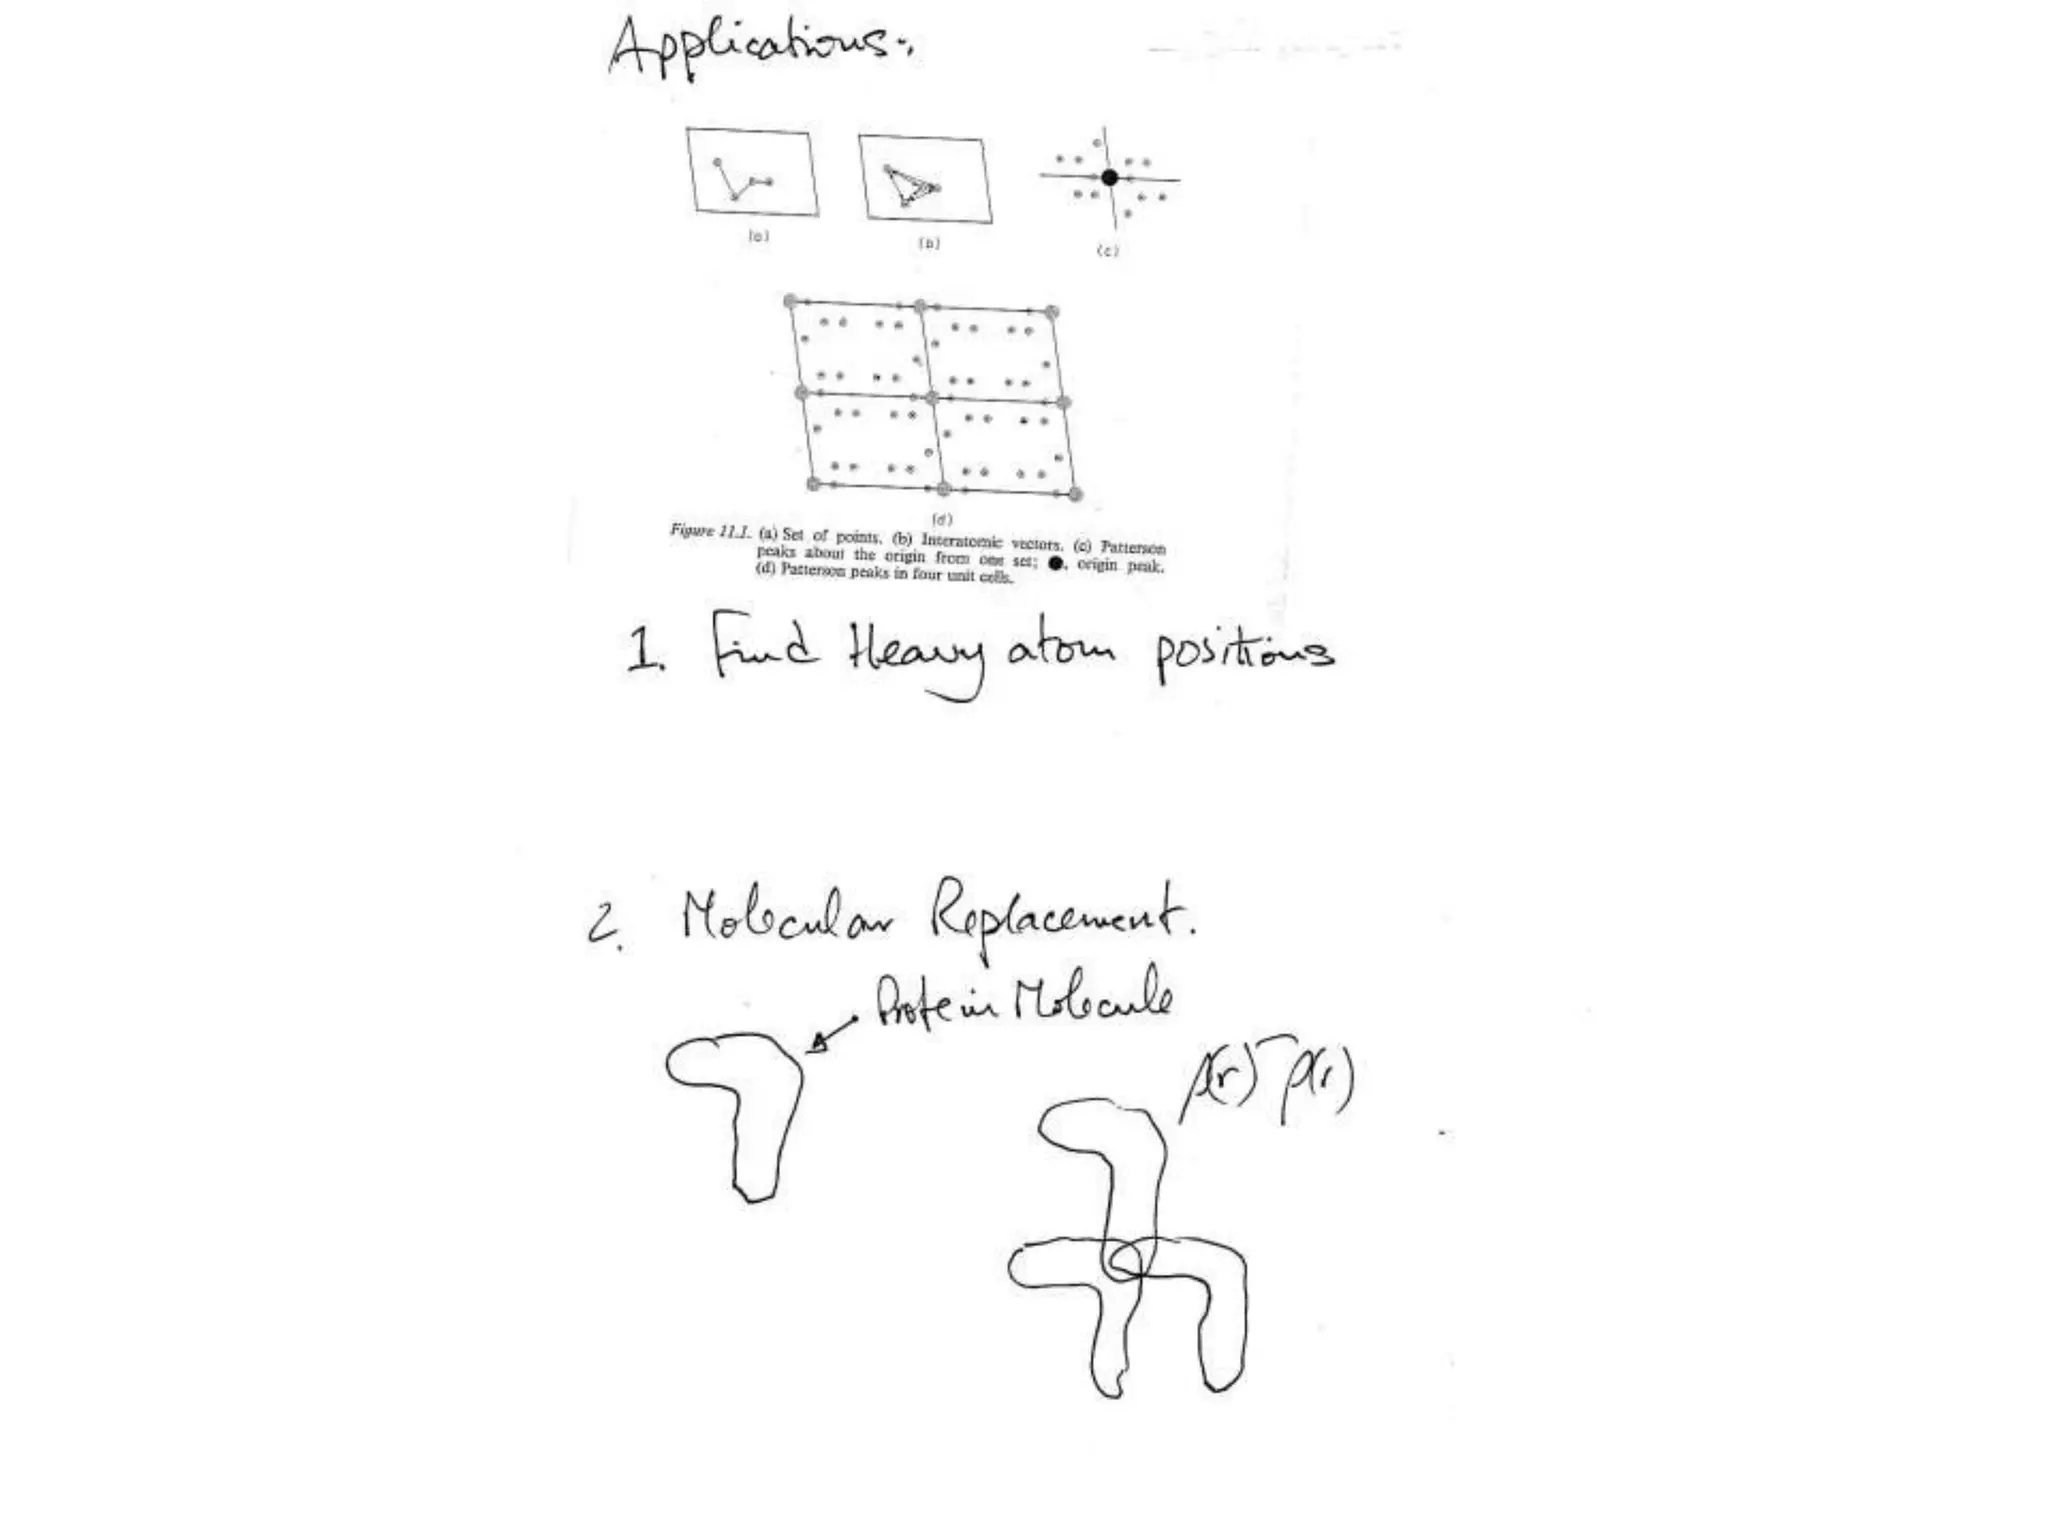 Applications:
(a)
(b)
(c)
(d)
Figure 11.1. (a) Set of points. (b) Interatomic vectors. (c) Patterson
peaks about the origin from one set; ●, origin peak.
(d) Patterson peaks in four unit cells.
1. Find Heavy atom positions
2. Molecular Replacement.
Protein Molecule
ρ(r) ρ(r)